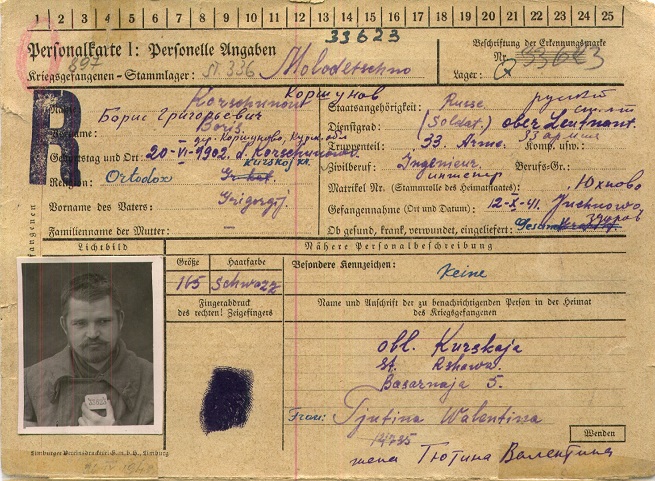 1 2 3 4 5 6 7 8 9 10 11 12 13 14 15 16 17 18 19 20 21 22 23 24 25
33623
Personalkarte I: Personelle Angaben
Beschriftung der Erkennungsmarke
Nr. 33623
897
Kriegsgefangenen-Stammlager: St 336 Molodetschno
Lager:
R
Korschunow Коршунов
Борис Григорьевич
Vorname: Boris
др. Коршуново Курской
Geburtstag und Ort: 20-VI-1902. d. Korschunowo
Kurskoj
Religion: Ortodox
Vorname des Vaters: Grigorij
Familienname der Mutter: –
Staatsangehörigkeit: Russe. русский
Dienstgrad: (Soldat.) ober Leutnant.
33 армия
Truppenteil: 33. Arme. Komp. usw.:
Zivilberuf: Ingenieur. Berufs-Gr.:
инженер
Matrikel Nr. (Stammrolle des Heimatstaates): Юхново
Gefangennahme (Ort und Datum): 12-X-41. Juchnowo
здоров
Ob gefund, krank, verwundet, eingeliefert: Gesund
Lichtbild
Größe Haarfarbe
165 Schwarz
Fingerabdruck
des rechten! Zeigefingers
Nähere Personalbeschreibung
Besondere Kennzeichen: Keine
Name und Anschrift der zu benachrichtigenden Person in der Heimat
des Kriegsgefangenen
obl. Kurskaja
st. Rshawa.
Basarnaja 5.
Frau: Tjutina Walentina
14735
жена Тютина Валентина
Wenden
Limburger Vereinsdruckerei G.m.b.H., Limburg